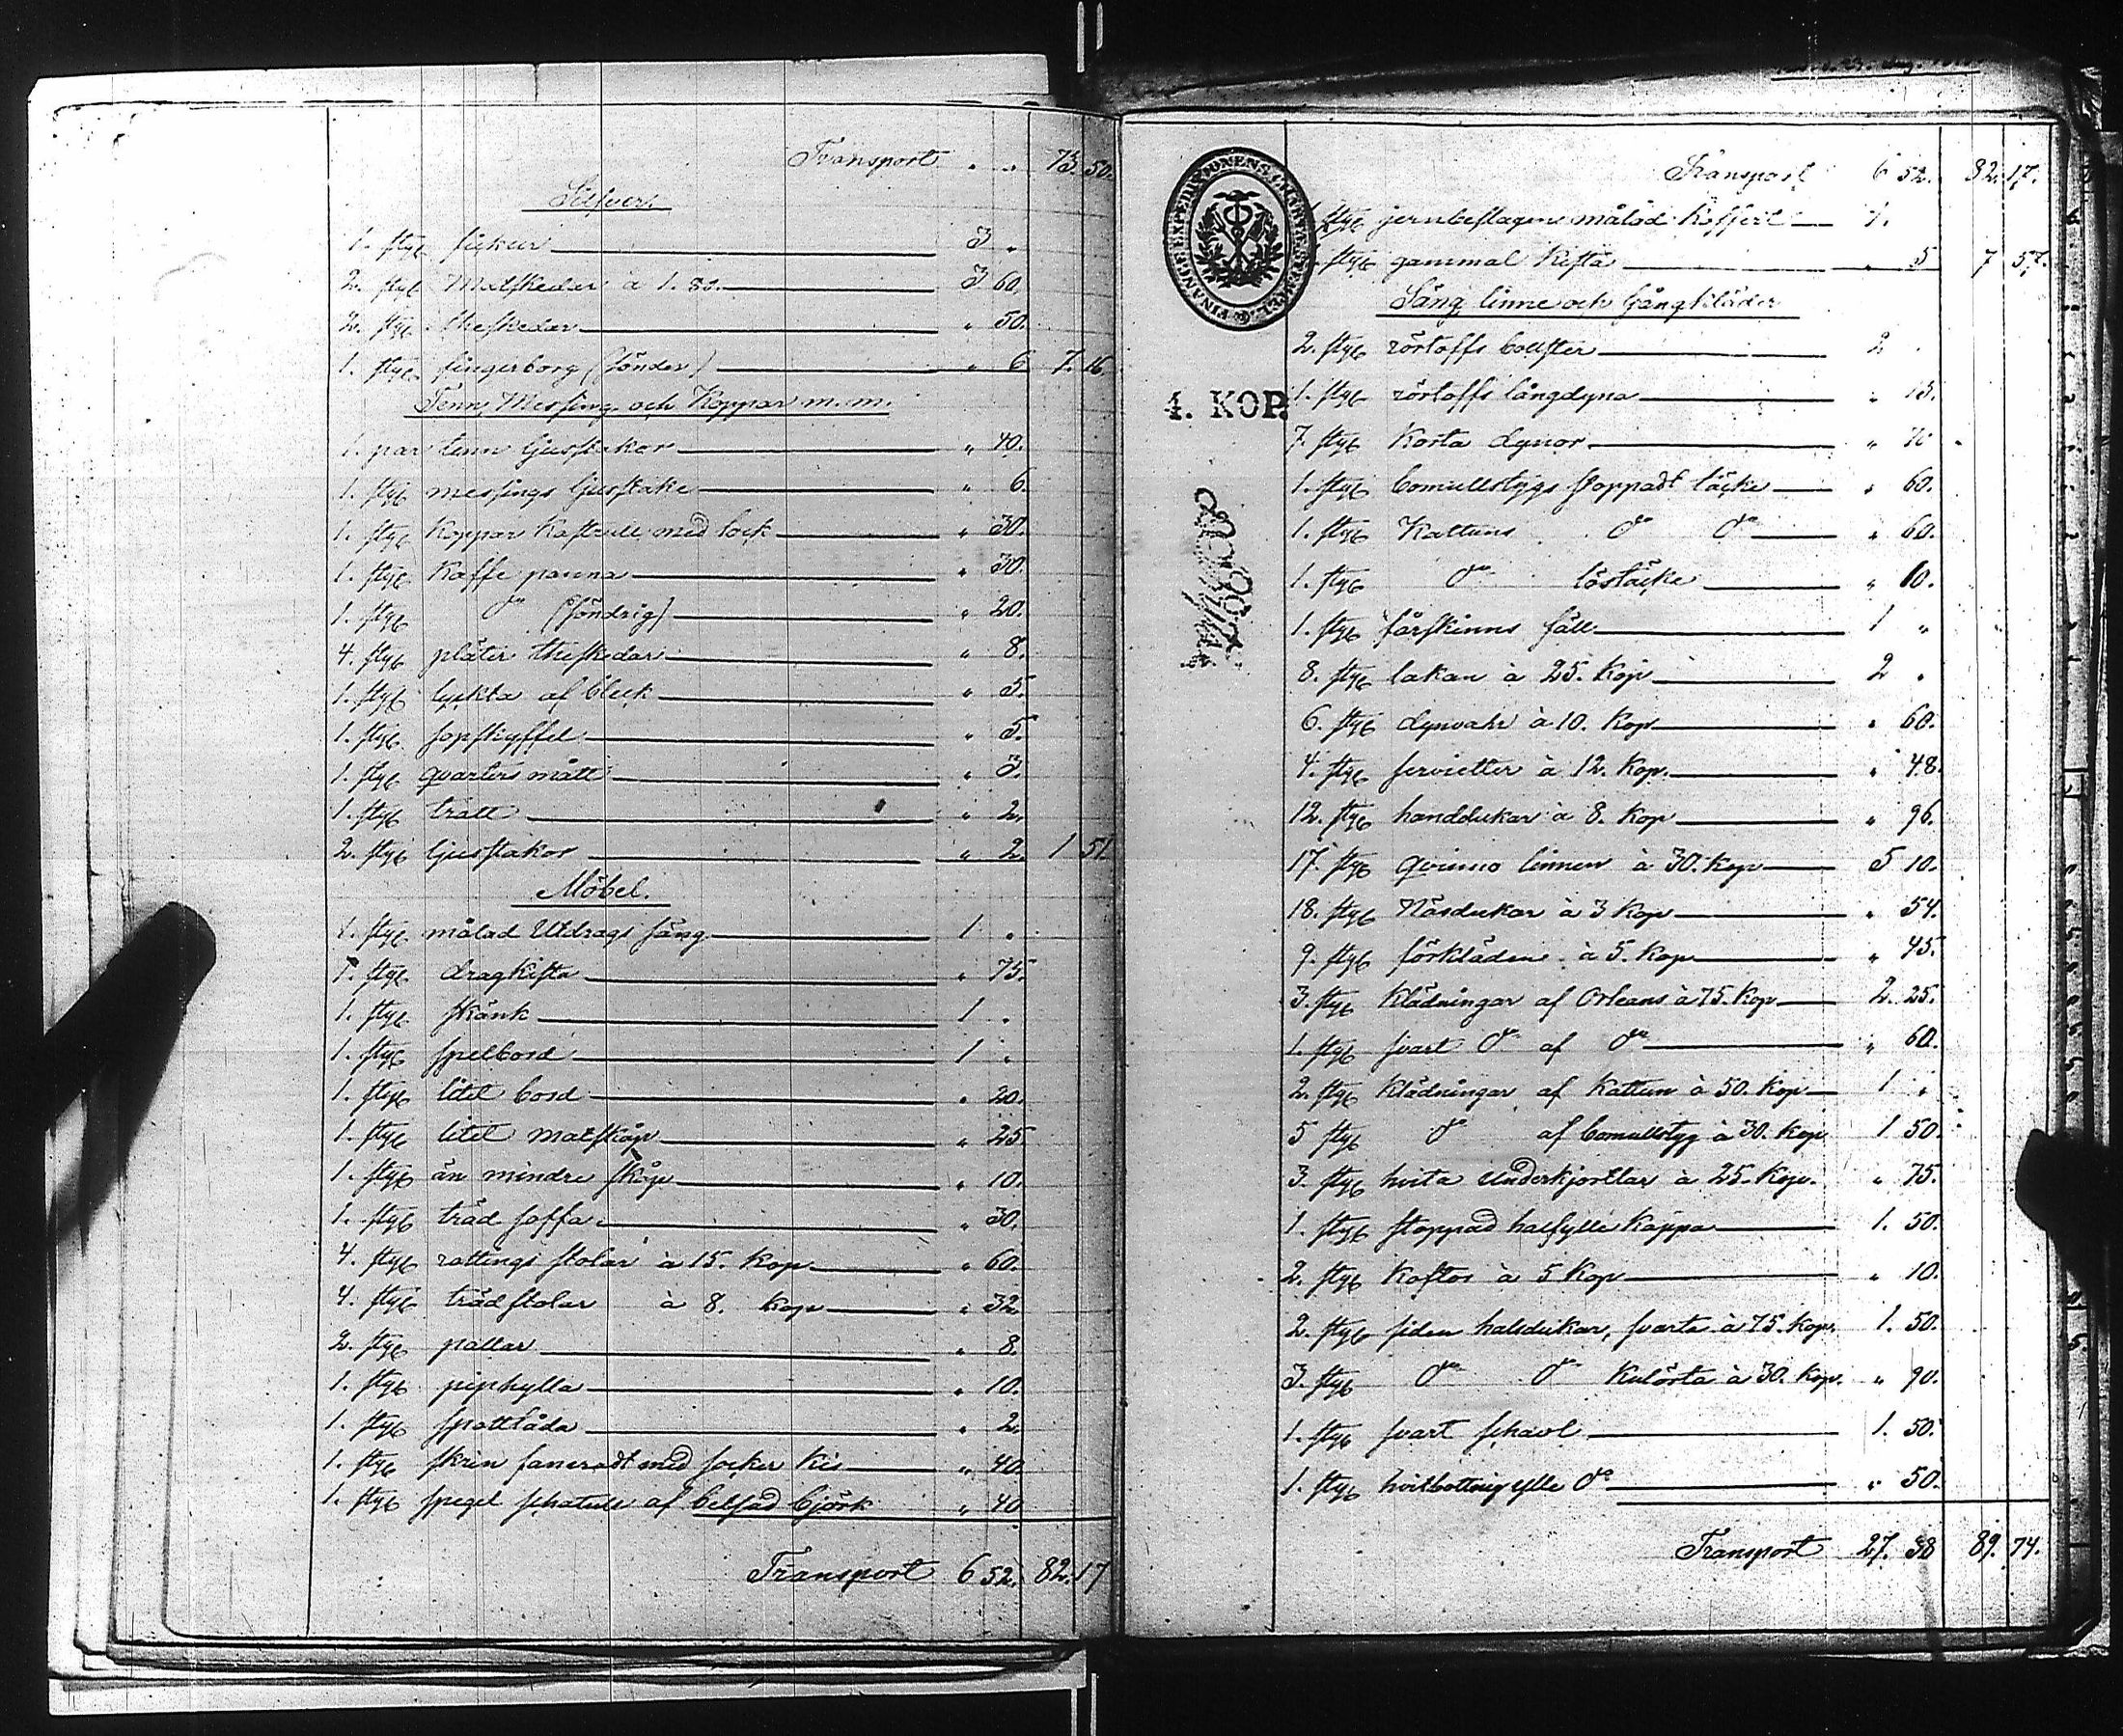 Transport " " 73. 50.
Silfver.
1. styk sicker 3 "
2. styk Matskedar à 1. 80. 3 60.
2. styk theskedar " 50.
1. styk fingerborg (sönder) " 6 7. 16.
Tenn, Messing och Koppar m.m.
1. par tenn ljusstakor " 40.
1. styk messings ljusstake " 6.
1. styk Koppar Kastrull med lock " 30.
1. styk Kaffe panna " 30.
1. styk do (söndrig) " 20.
4. styk pläter theskedar " 8.
1. styk lyckta af bleck " 5.
1. styk sopskyffel " 5.
1. styk qvarters mått " 3.
1. styk tratt " 2.
2. styk ljusstakor " 2. 1 51.
Möbel.
1. styk målad Utdrags säng 1 "
1. styk dragkista " 75.
1. styk skänk 1 "
1. styk spelbord 1 "
1. styk litet bord " 20.
1. styk litet matskåp " 25
1. styk än mindre skåp " 10.
1. styk träd soffa " 30.
4. styk rottings stolar à 15. Kop " 60.
4. styk trädstolar à 8. Kop " 32.
2. styk pallar " 8.
1. styk piphylla " 10.
1. styk spottlåda " 2.
1. styk skrin faneradt med socker Kis " 40
1. styk spegel schatull af betsad björk " 40
Transport 6 52. 82. 17
Transport 6 52. 82. 17.
FINANCE EXPEDITIONENS CHARTÆ STEMPEL
4. KOP.
styk jernbeslagen målad Koffert 1.
styk gammal Kista " 5 7 57.
Säng linne och Gångkläder
2. styk rörtofts bolster 2 "
1. styk rörtofts långdyna " 15.
7. styk Korta dynor " 70
1. styk bomullstygs stoppadt täcke " 60.
1. styk Kattuns do do " 60.
1. styk do löstäcke " 10.
1. styk fårskinns fäll 1 "
8. styk lakan à 25. Kop 2 "
6. styk dynvahr à 10. Kop " 60.
4. styk servietter à 12. Kop. " 48.
12. styk handdukar à 8. Kop " 96.
17. styk qvinno linnen à 30. Kop 5 10.
18. styk Näsdukar à 3 Kop " 54.
9. styk förkläden à 5. Kop " 45.
3. styk Klädningar af Orleans à 75. Kop 2. 25.
1. styk svart do af do " 60.
2. styk Klädningar af Kattun à 50. Kop 1 "
5 styk do af bomullstyg à 30. Kop 1 50.
3. styk hvita Underkjortlar à 25. Kop. " 75.
1. styk stoppad halfylle Kappa 1. 50.
2. styk Koftor à 5 Kop " 10.
2. styk siden halsdukar, svarta à 75. Kop. 1. 50.
3. styk do do Kulörta à 30. Kop. " 90.
1. styk svart schavl 1. 50.
1. styk hvitbottnig ylle do " 50.
Transport 27. 38 89. 74.